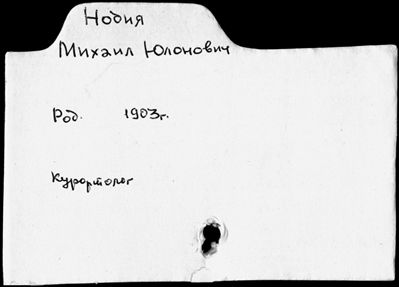 Нодия
Михаил Юлонович
Род. 1903г.
Курортолог